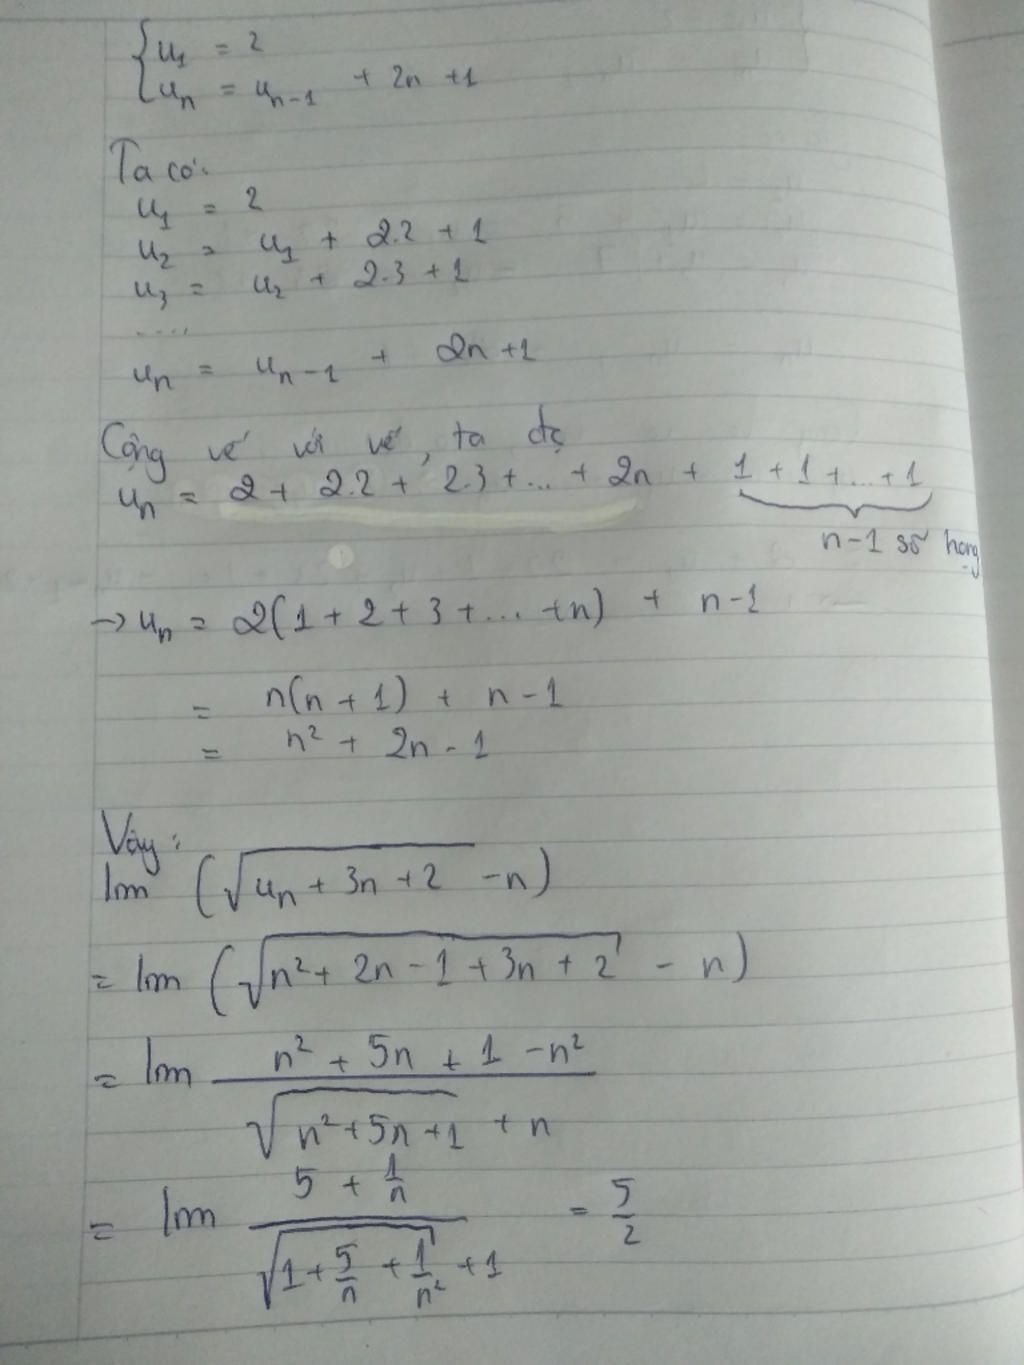 { u₁ = 2
uₙ = uₙ₋₁ + 2n + 1
Ta có:
u₁ = 2
u₂ = u₁ + 2.2 + 1
u₃ = u₂ + 2.3 + 1
....
uₙ = uₙ₋₁ + 2n + 1
Cộng vế với vế, ta đc
uₙ = 2 + 2.2 + 2.3 + ... + 2n + 1 + 1 + ... + 1
n-1 số hạng
→ uₙ = 2(1 + 2 + 3 + ... + n) + n - 1
= n(n + 1) + n - 1
= n² + 2n - 1
Vậy:
lim (√(uₙ + 3n + 2) - n)
= lim (√(n² + 2n - 1 + 3n + 2) - n)
= lim (n² + 5n + 1 - n²) / (√(n² + 5n + 1) + n)
= lim (5 + 1/n) / (√(1 + 5/n + 1/n²) + 1) = 5/2